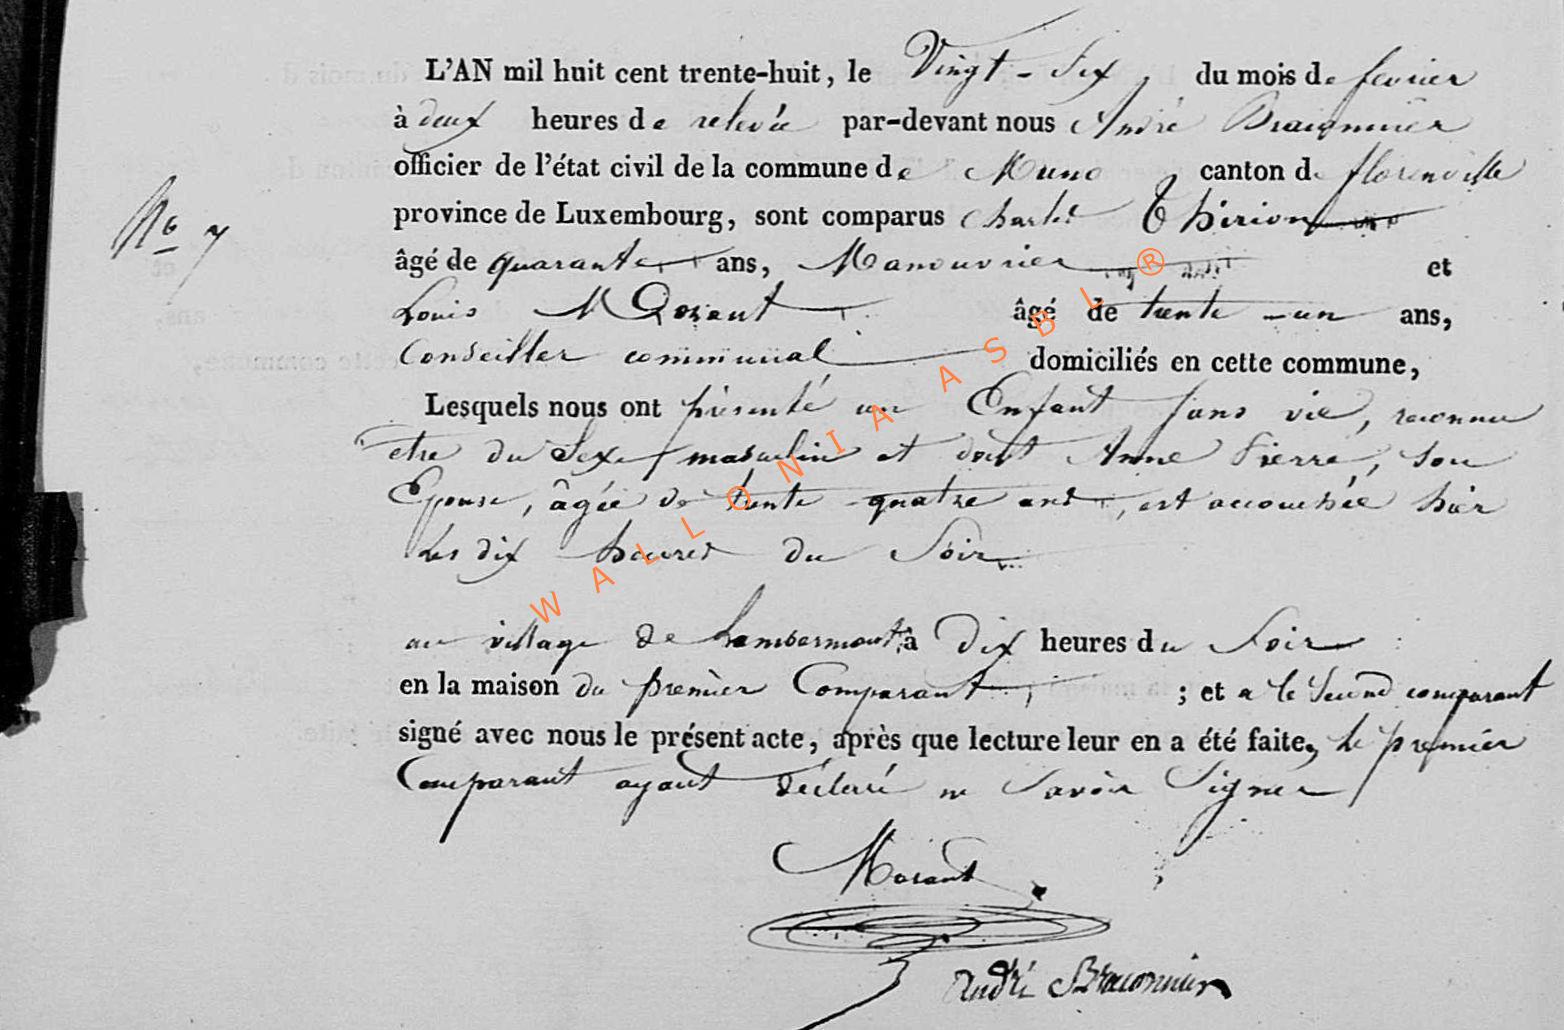 L'AN mil huit cent trente-huit, le Vingt-Six, du mois de fevrier
à deux heures de relevée par-devant nous André Braconnier
officier de l'état civil de la commune de Muno, canton de florenville
No 7
province de Luxembourg, sont comparus Charles Thirion
âgé de quarante ans, Manouvrier et
Louis Morant âgé de trente-un ans,
Conseiller communal domiciliés en cette commune,
Lesquels nous ont présenté un Enfant Sans vie, reconnu
etre du Sexe masculin et dont Anne Pierre, Son
Epouse, âgée de trente-quatre ans, est accouchée hier
les dix heures du Soir
au village de Lambermont, à Dix heures du Soir
en la maison du premier Comparant, ; et a le Second comparant
signé avec nous le présent acte, après que lecture leur en a été faite, le premier
Comparant ayant déclaré ne Savoir Signer
Morant
André Braconnier
WALLONIA ASBL ®